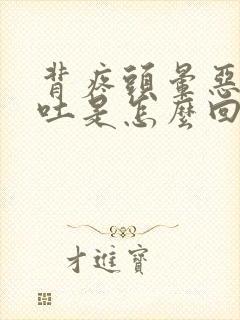 背疼頭暈惡
吐是怎麼回
才進寶